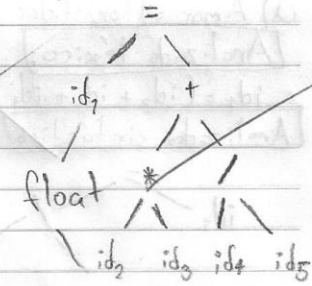 =
id₁ +
float *
id₂ id₃ id₄ id₅